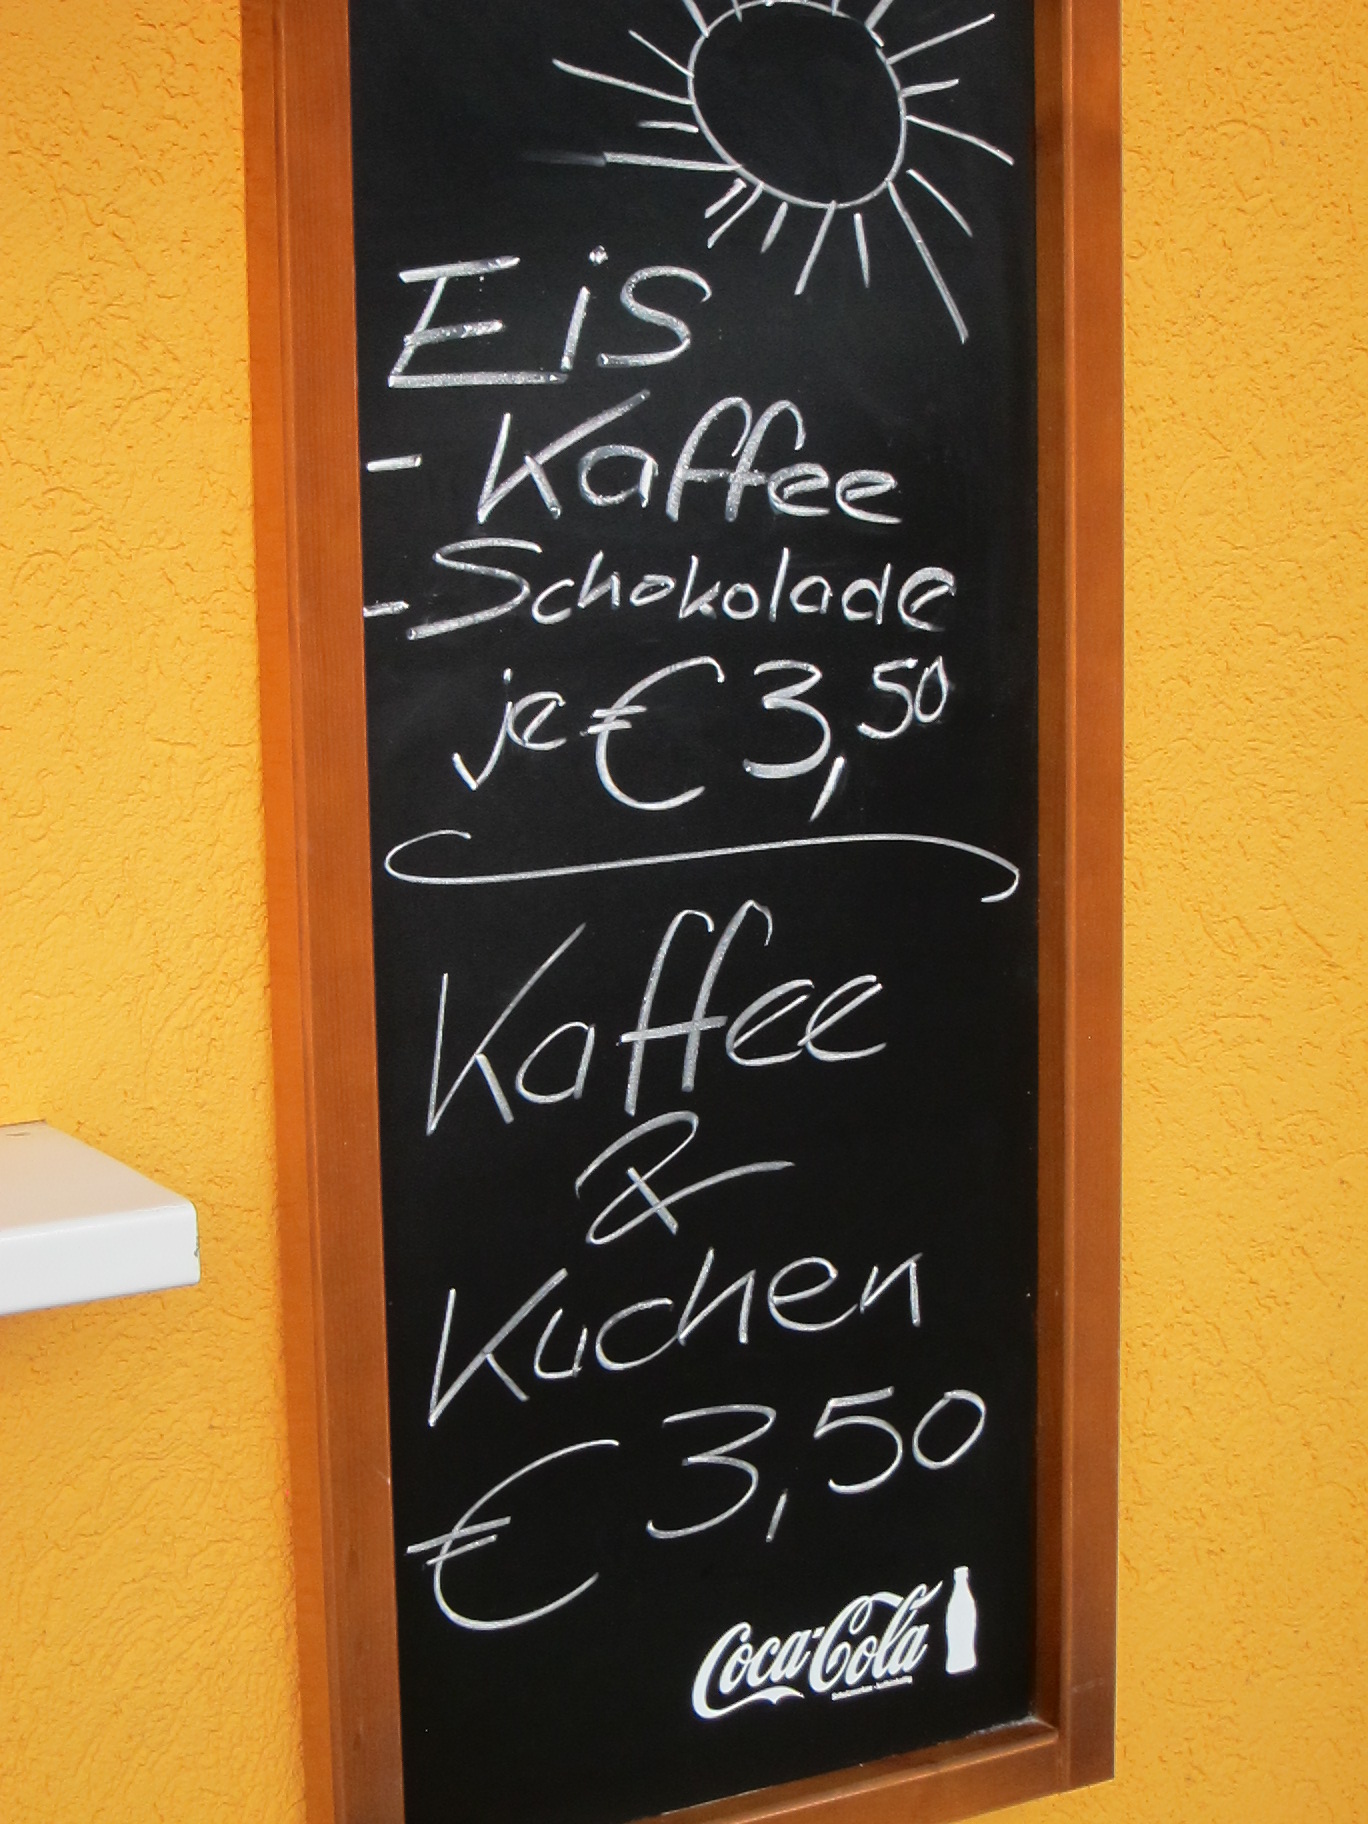 Eis
- Kaffee
- Schokolade
je € 3,50
Kaffee
&
Kuchen
€ 3,50
Coca-Cola